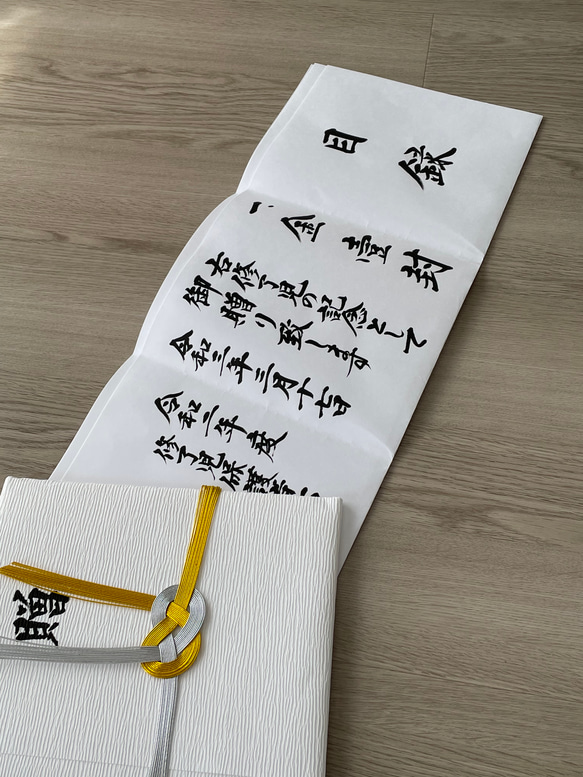 目録
一、金壹封
右修了児の記念として
御贈り致します
令和三年三月十七日
令和二年度
修了児保護者一
贈